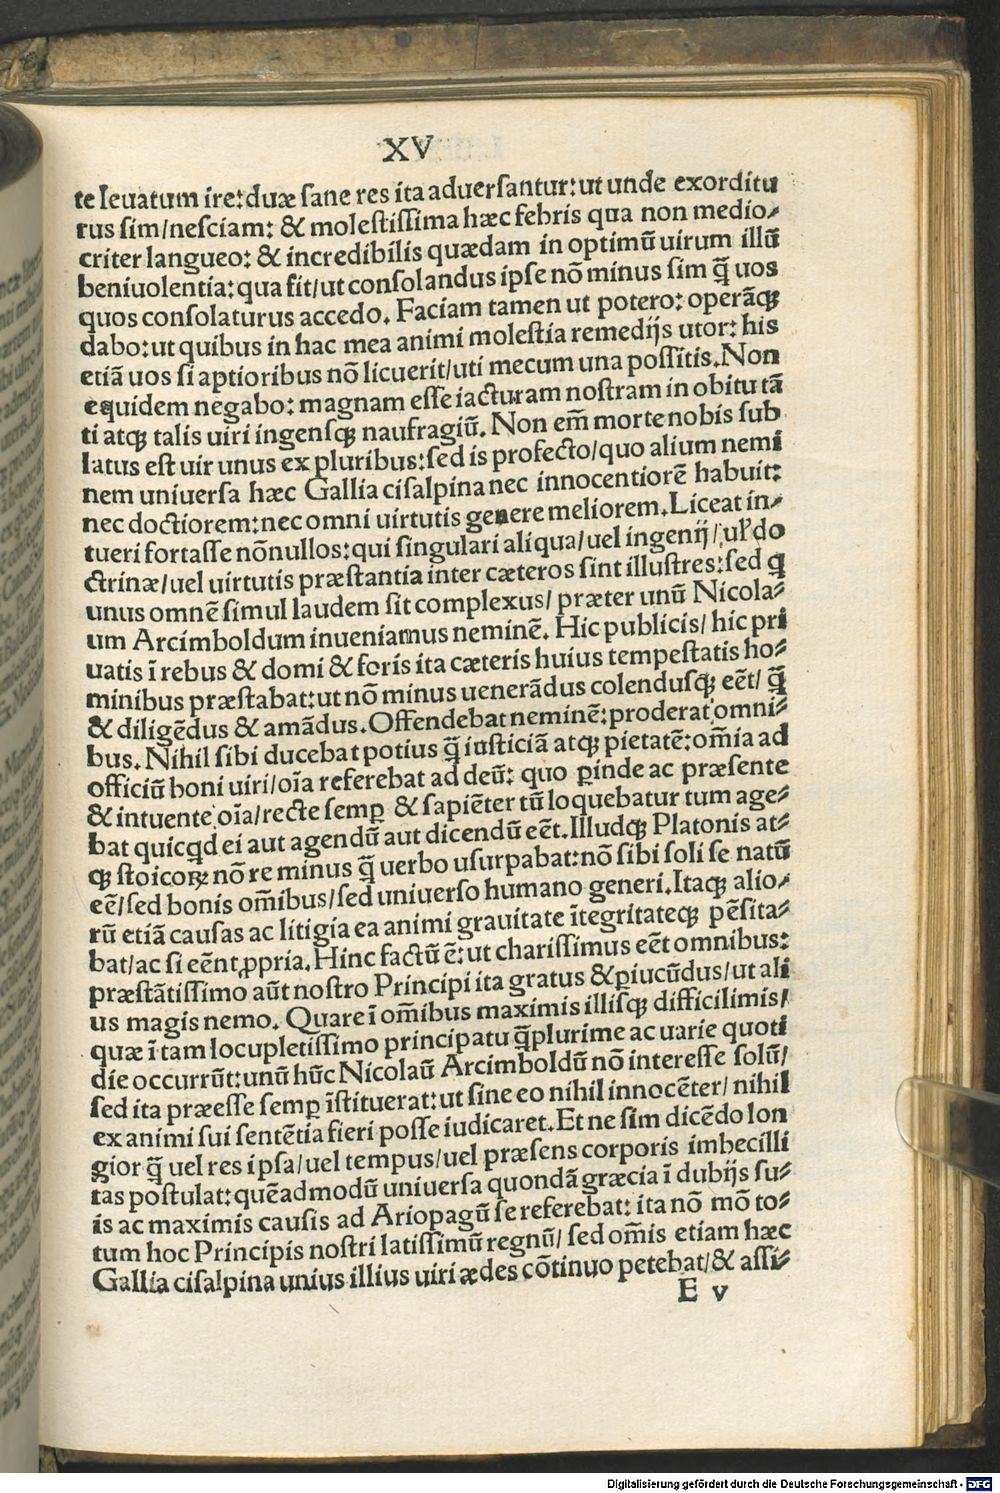 XV
te leuatum ire: duæ sane res ita aduersantur: ut unde exorditu
rus sim/nesciam: & molestissima hæc febris qua non medio⸗
criter langueo: & incredibilis quædam in optimũ uirum illũ
beniuolentia: qua fit/ut consolandus ipse nõ minus sim q̃ uos
quos consolaturus accedo. Faciam tamen ut potero: operãqꝫ
dabo: ut quibus in hac mea animi molestia remedijs utor: his
etiã uos si aptioribus nõ licuerit/uti mecum una possitis. Non
equidem negabo: magnam esse iacturam nostram in obitu tã
ti atqꝫ talis uiri ingensqꝫ naufragiũ. Non em̃ morte nobis sub
latus est uir unus ex pluribus: sed is profecto/quo alium nemi
nem uniuersa hæc Gallia cisalpina nec innocentiorẽ habuit:
nec doctiorem: nec omni uirtutis genere meliorem. Liceat in⸗
tueri fortasse nõnullos: qui singulari aliqua/uel ingenij/ ul̛ do
ctrinæ/uel uirtutis præstantia inter cæteros sint illustres: sed ꝙ
unus omnẽ simul laudem sit complexus/ præter unũ Nicola⸗
um Arcimboldum inueniamus neminẽ. Hic publicis/ hic pri
uatis ĩ rebus & domi & foris ita cæteris huius tempestatis ho⸗
minibus præstabat: ut nõ minus uenerãdus colendusqꝫ eẽt/ q̃
& diligẽdus & amãdus. Offendebat neminẽ: proderat omni⸗
bus. Nihil sibi ducebat potius q̃ iusticiã atqꝫ pietatẽ: om̃ia ad
officiũ boni uiri/oĩa referebat ad deũ: quo ꝑinde ac præsente
& intuente oĩa/recte semꝑ & sapiẽter tũ loquebatur tum age⸗
bat quicqd ei aut agendũ aut dicendũ eẽt. Illudqꝫ Platonis at⸗
qꝫ stoicoꝝ nõ re minus q̃ uerbo usurpabat: nõ sibi soli se natũ
eẽ/sed bonis om̃ibus/sed uniuerso humano generi. Itaqꝫ alio⸗
rũ etiã causas ac litigia ea animi grauitate ĩtegritateqꝫ pẽsita⸗
bat/ac si eẽnt ꝓpria. Hinc factũ ẽ: ut charissimus eẽt omnibus:
præstãtissimo aũt nostro Principi ita gratus & ꝑiucũdus/ut ali
us magis nemo. Quare ĩ om̃ibus maximis illisqꝫ difficilimis/
quæ ĩ tam locupletissimo principatu q̃plurime ac uarie quoti
die occurrũt: unũ hũc Nicolaũ Arcimboldũ nõ interesse solũ/
sed ita præesse semꝑ ĩstituerat: ut sine eo nihil innocẽter/ nihil
ex animi sui sentẽtia fieri posse iudicaret. Et ne sim dicẽdo lon
gior q̃ uel res ipsa/uel tempus/uel præsens corporis imbecilli
tas postulat: quẽadmodũ uniuersa quondã græcia ĩ dubijs su⸗
is ac maximis causis ad Ariopagũ se referebat: ita nõ mõ to⸗
tum hoc Principis nostri latissimũ regnũ/ sed om̃is etiam hæc
Gallia cisalpina unius illius uiri ædes cõtinuo petebat/& assi⸗
E v
Digitalisierung gefördert durch die Deutsche Forschungsgemeinschaft - DFG